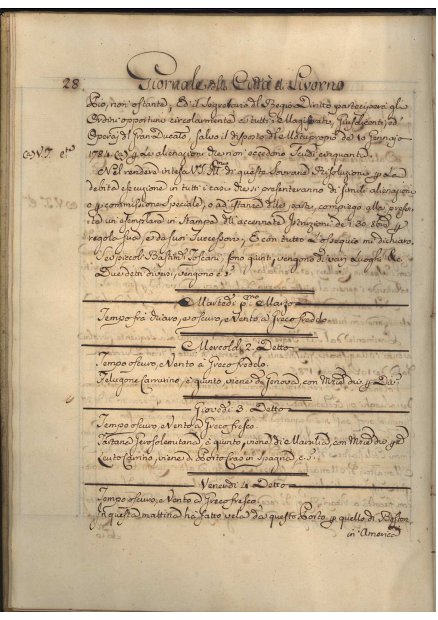 28.
Giornale della Città di Livorno
Pio, non ostante, Ed il Segretario del Regio Diritto parteciperà gli
Ordini opportuni circolarmente a tutti i Magistrati, Giusdicenti, ed
Opera, del Gran Ducato salvo il disposto del Motuproprio de 10 Gennajo
1784. (a) q Le alienazioni che non eccedono Scudi cinquanta.
(a) V. T. etc
Nel rendere intesa V. Ill.ma di questa Sovrana Risoluzione p La
debita esecuzione in tutti i casi che si presenteranno di simili alienazioni
o p commissione speciale, o ad istanza delle parti, compiego alla presen-
te un esemplare in stampa dell'accennate Istruzioni de 30. p
regola sua, e de suoi Successori, E con tutto L'ossequio mi dichiaro.
Sei piccoli Bastim.ti Toscani, sono giunti, vengono di vari Luoghi, &
Due detti di nuovi, vengono &
Martedì p.mo Marzo
Tempo fra chiaro, e oscuro, e Vento a Greco freddo
Mercoldì 2 Detto
Tempo oscuro, e Vento a Greco freddo.
Felugone Carrarino, è giunto, viene di Genova, con Mercd.
Giovedì 3 Detto
Tempo oscuro, e Vento a Greco fresco.
Tartana Gerosolimitana è giunto, viene di Marsilia, con
Leuto Corsino, viene di Porto in Spagna, &
Venerdì 4 Detto
Tempo oscuro, e Vento a Greco fresco.
In questa mattina ha fatto vela da questo Porto p quello di Boston
in America